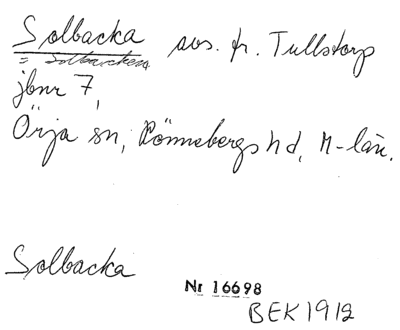 Solbacka avs. fr. Tullstorp
= Solbacken
jbnr 7,
Örja sn, Rönnebergs hd, M-län.
Solbacka
Nr 16698
BEK 1912